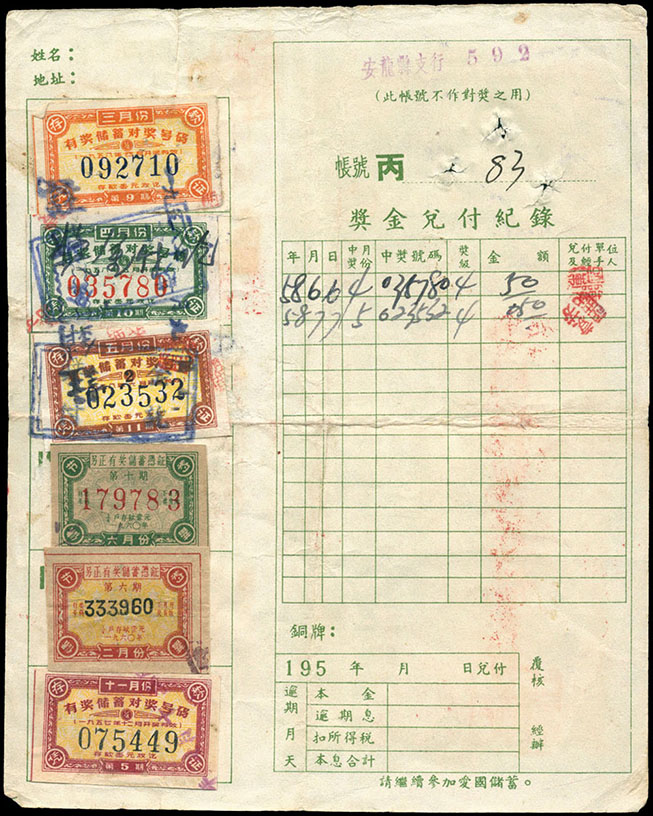 姓名：
地址：
三月份
有奖储蓄对奖号码
092710
存款壹元放讫
第9期
四月份
035780
第10期
五月份
有奖储蓄对奖号码
2
023532
存款壹元放讫
第11期
易正有奖儲蓄憑証
第十期
179783
一九六〇年
六月份
易正有奖儲蓄憑証
第六期
333960
一九六〇年
二月份
十一月份
有奖储蓄对奖号码
075449
存款壹元放讫
第5期
安龍縣支行 592
(此帳號不作對獎之用)
帳號 丙 83
獎金兌付紀錄
年 月 日 中獎月份 中獎號碼 獎級 金額 兌付單位及經手人
58 6 6 4 035780 4 50
58 7 7 5 023532 4 050
銅牌：
195 年 月 日兌付
逾期 月 天
本金
逾期息
扣所得税
本息合計
覆核
經辦
請繼續參加愛國儲蓄。